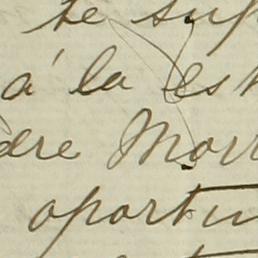 te sup
á la est
dre Morr
oportu